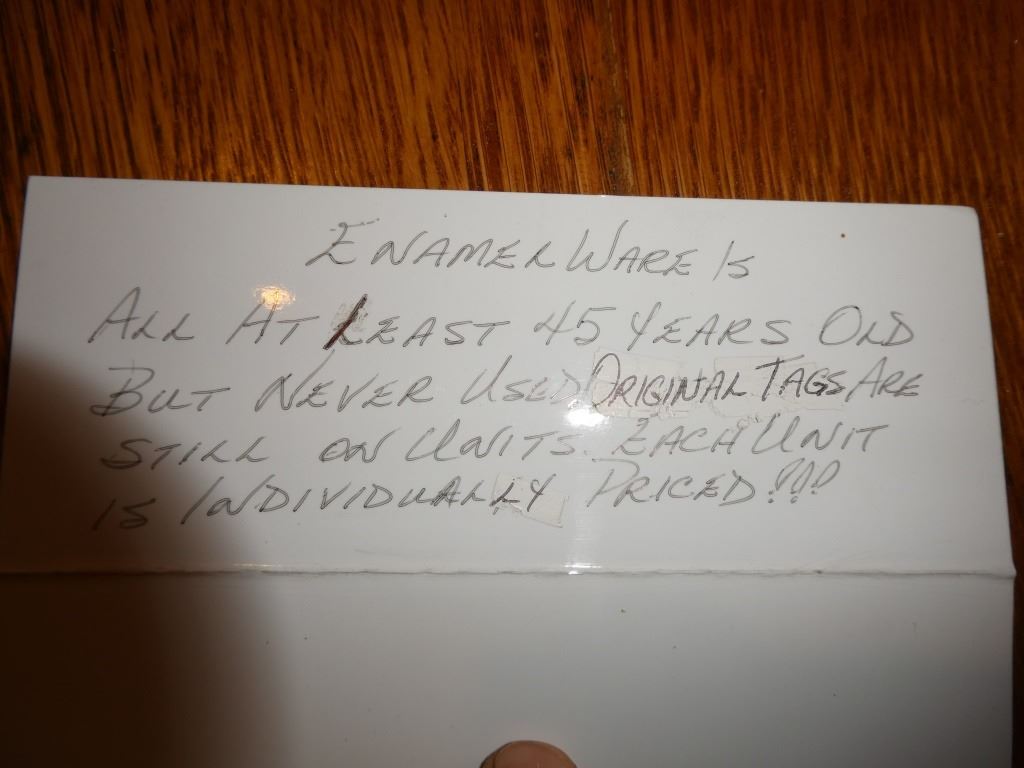 ENAMEL WARE IS
ALL AT LEAST 45 YEARS OLD
BUT NEVER USED ORIGINAL TAGS ARE
STILL ON UNITS. EACH UNIT
IS INDIVIDUALLY PRICED!!!